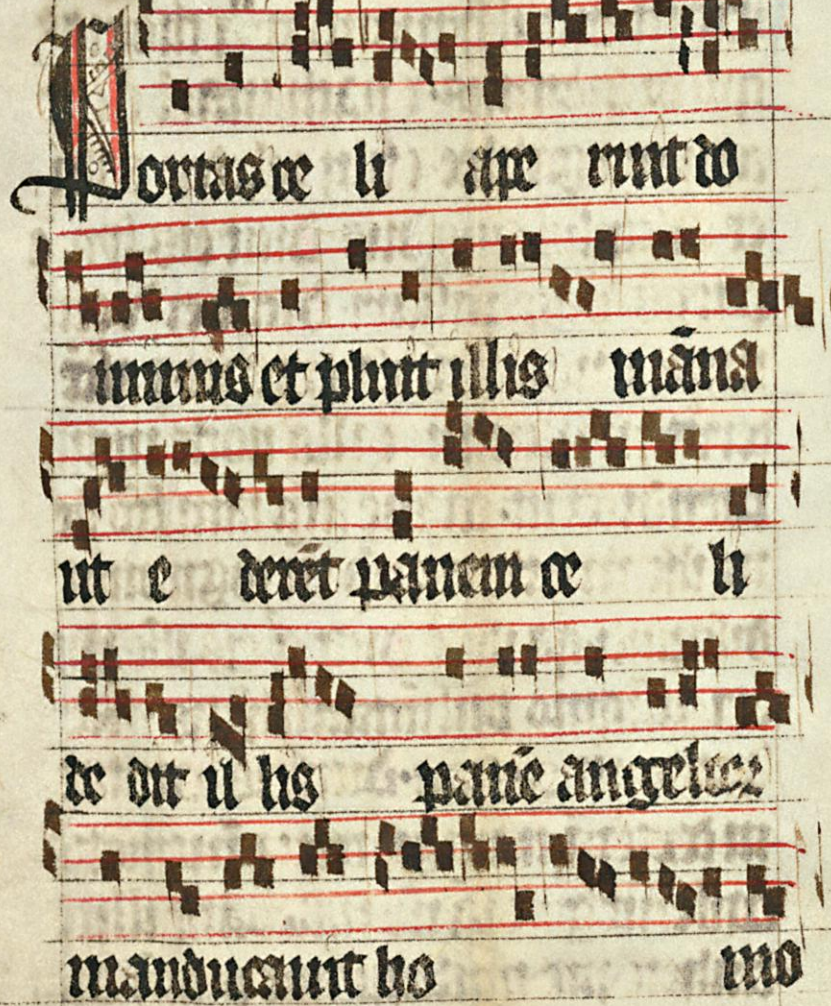 Portas ce li ape runt do
minus et pluit illis māna
ut e derēt panem ce li
de dit il lis panē angelicꝝ
manducauit ho mo